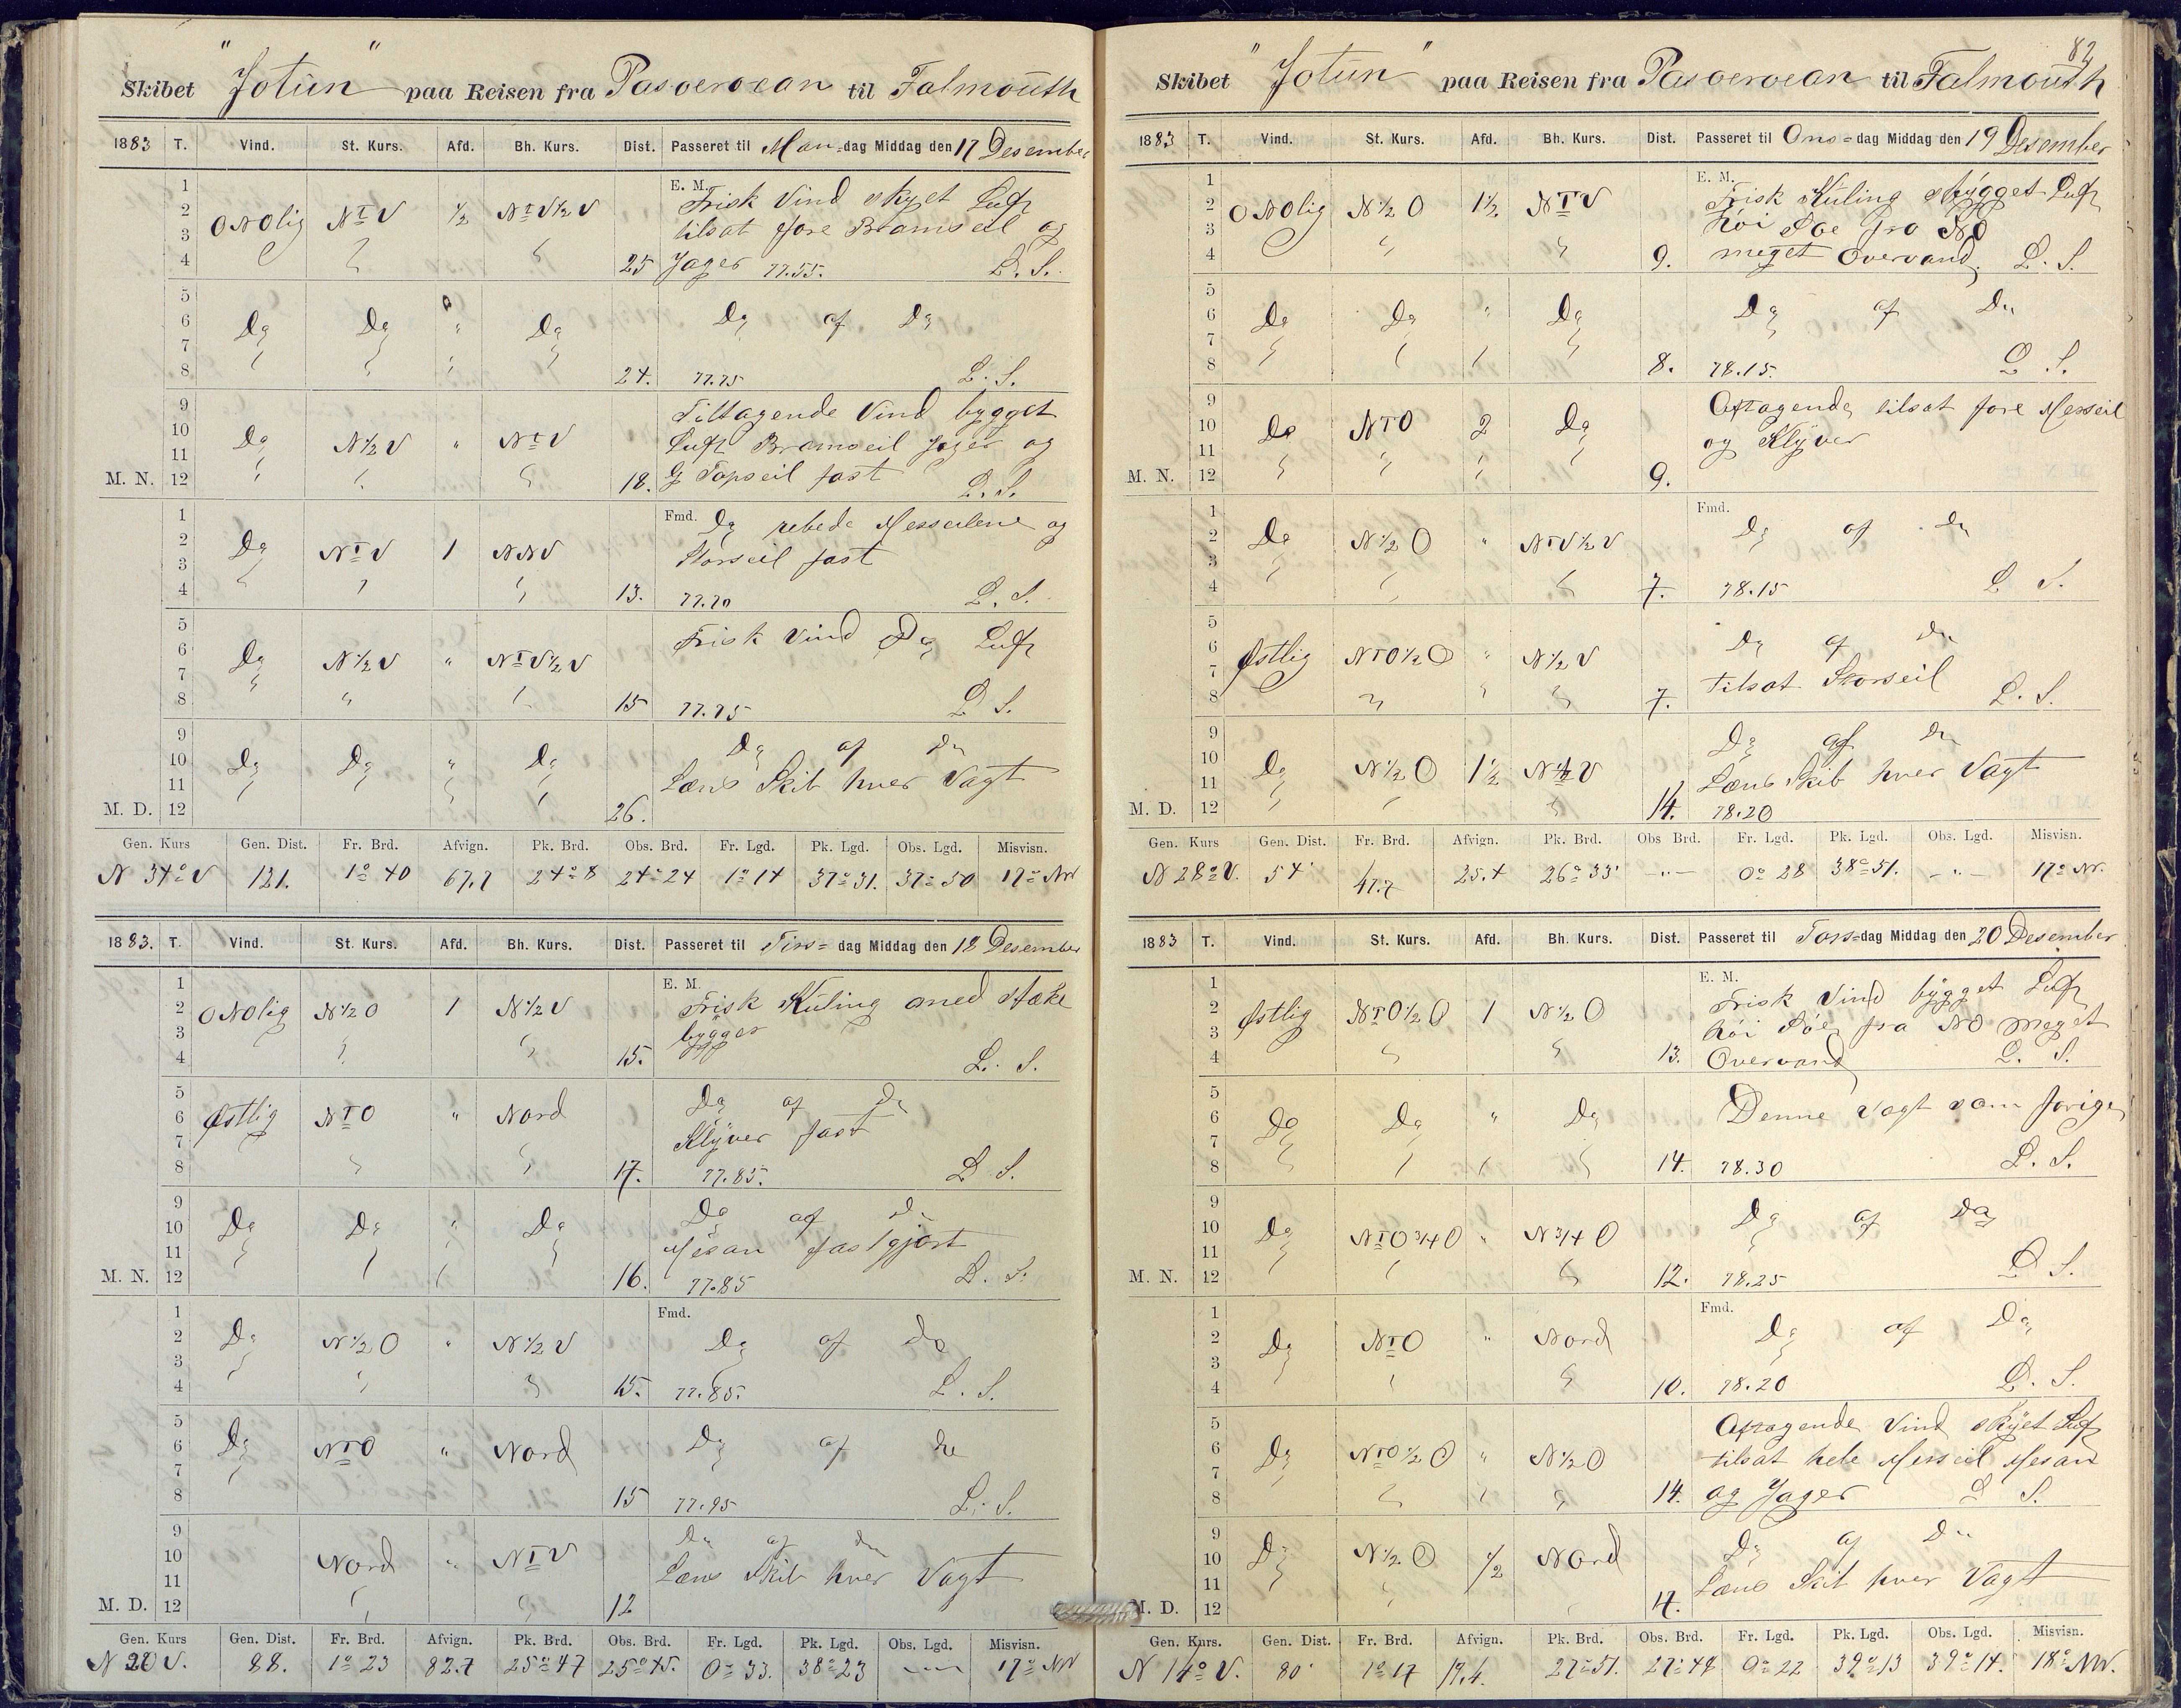 Skibet "Jotun" paa Reisen fra Pasoeroean til Falmouth
1883 T. Vind. St. Kurs. Afd. Bh. Kurs. Dist. Passeret til Man-dag Middag den 17 Desember
1 E. M.
2 ONOlig NTV 1/2 NTV1/2V Frisk Vind skyet Luft
3 tilsat fore Bramseil og
4 25 Jager 77.55. L. S.
5
6 Do Do " Do Do af Do
7
8 24. 77.75 L. S.
9 Tiltagende Vind bygget
10 Do N1/2V " NTV Luft Bramseil Jager og
11
M. N. 12 18. G Topseil fast L. S.
1 Fmd. Do rebede Mersseilene og
2 Do NTV 1 NNV Storseil fast
3
4 13. 77.70 L. S.
5 Frisk Vind Do Luft
6 Do N1/2V " NTV1/2V
7
8 " 15 77.75 L. S.
9 Do af Do
10 Do Do " Do Læns Skib hver Vagt
11
M. D. 12 26.
Gen. Kurs Gen. Dist. Fr. Brd. Afvign. Pk. Brd. Obs. Brd. Fr. Lgd. Pk. Lgd. Obs. Lgd. Misvisn.
N 34° V 121. 1° 40 67.7 24° 8 24° 24 1° 14 37° 31. 37° 50 17° NV
1883. T. Vind. St. Kurs. Afd. Bh. Kurs. Dist. Passeret til Tirs= dag Middag den 18 Desember
1 E. M.
2 ONOlig N1/2O 1 N1/2V Frisk Kuling med stærke
3 bygger
4 15. L. S.
5 Do af Do
6 Østlig NTO " Nord Klyver fast
7
8 17. 77.85. L. S.
9 Do af Do
10 Do Do " Do Mesan fastgjort
11
M. N. 12 16. 77.85 L. S.
1 Fmd.
2 Do N1/2O " N1/2V Do af Do
3
4 15. 77.85. L. S.
5
6 Do NTO " Nord Do af Do
7
8 15 77.95 L. S.
9 Do af Do
10 Nord " NTV Læns Skib hver Vagt
11
M. D. 12 12
Gen. Kurs Gen. Dist. Fr. Brd. Afvign. Pk. Brd. Obs. Brd. Fr. Lgd. Pk. Lgd. Obs. Lgd. Misvisn.
N 20 V. 88. 1° 23 82.7 25° 47 25° 45. 0° 33. 38° 23 17° NV
82
Skibet "Jotun" paa Reisen fra Pasoeroean til Falmouth
1883 T. Vind. St. Kurs. Afd. Bh. Kurs. Dist. Passeret til Ons=dag Middag den 19 Desember
1 E. M.
2 ONOlig N1/2O 1 1/2 NTV Frisk Kuling skygget Luft
3 høi Søe fra NO
4 9. meget Overvand. L. S.
5
6 Do Do " Do Do af Do
7
8 8. 78.15. L. S.
9 Aftagende tilsat fore Merseil
10 Do NTO 2 Do og Klyver
11
M. N. 12 9.
1 Fmd.
2 Do N1/2O " NTV1/2V Do af Do
3
4 7. 78.15 L S.
5
6 Østlig NTO1/2O " N1/2V Do af Do
7 tilsat Storseil
8 7. L. S.
9 Do af Do
10 Do N1/2O 1 1/2 N1/2V Læns Skib hver Vagt
11
M. D. 12 14. 78.20
Gen. Kurs Gen. Dist. Fr. Brd. Afvign. Pk. Brd. Obs Brd. Fr. Lgd. Pk. Lgd. Obs. Lgd. Misvisn.
N 28° V. 54' 47.7 25.4 26° 33' -"- 0° 28 38° 51. -"- 17° NV.
1883 T. Vind. St. Kurs. Afd. Bh. Kurs. Dist. Passeret til Tors=dag Middag den 20 Desember
1 E. M.
2 Østlig NTO1/2O 1 N1/2O Frisk Vind bygget Luft
3 høi Søe fra NO meget
4 13. Overvand L. S.
5
6 Do Do " Do Denne Vagt som forige
7
8 14. 78.30 L. S.
9
10 Do NTO3/4O " N3/4O Do af Do
11
M. N. 12 12. 78.25 L S.
1 Fmd.
2 Do NTO " Nord Do af Do
3
4 10. 78.20 L. S.
5 Aftagende Vind skyet Luft
6 Do NTO1/2O " N1/2O tilsat hele Merseil Mesan
7
8 14. og Jager L S.
9 Do af Do
10 Do N1/2O 1/2 Nord Læns Skib hver Vagt
11
M. D. 12 17.
Gen. Kurs. Gen. Dist. Fr. Brd. Afvign. Pk. Brd. Obs. Brd. Fr. Lgd. Pk. Lgd. Obs. Lgd. Misvisn.
N 14° V. 80' 1° 17 19.4. 27° 51. 27° 48 0° 22 39° 13 39° 14. 18° NV.